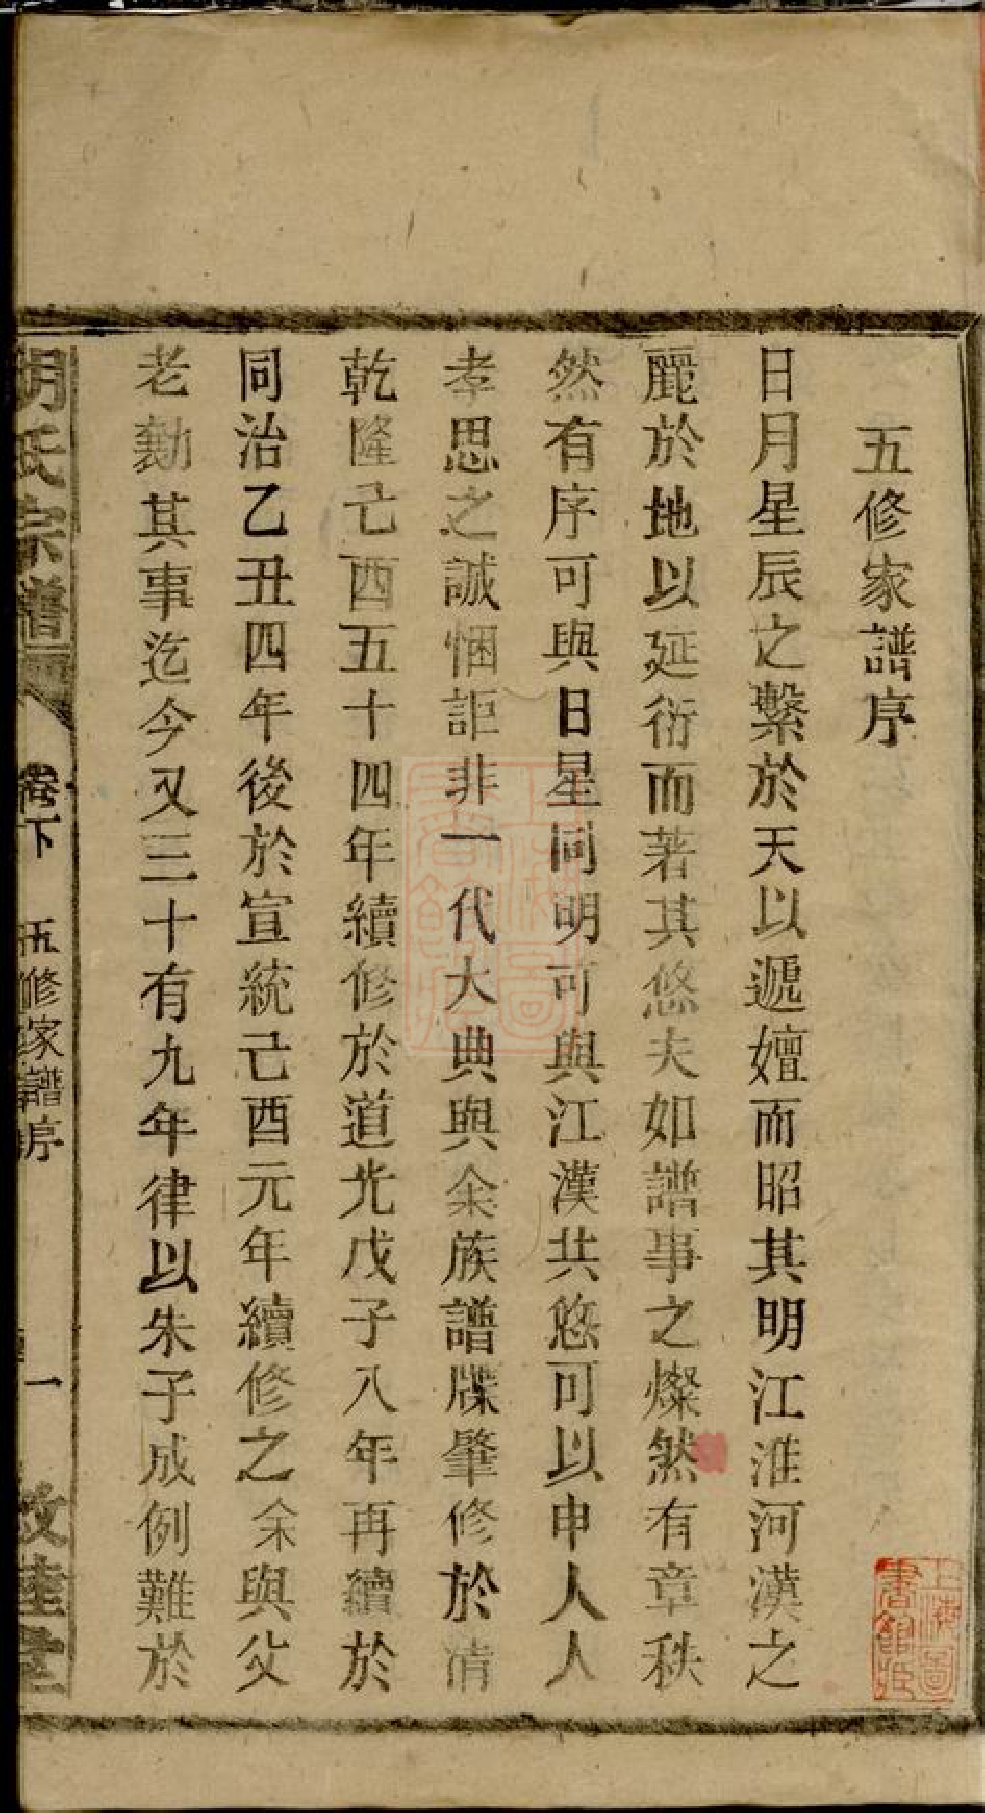 五修家譜序
日月星辰之繫於天以遞嬗而昭其明江淮河漢之
麗於地以延衍而著其悠夫如譜事之燦然有章秩
然有序可與日星同明可與江漢共悠可以申人人
孝思之誠悃詎非一代大典與余族譜牒肇修於清
乾隆己酉五十四年續修於道光戊子八年再續於
同治乙丑四年後於宣統己酉元年續修之余與父
老勷其事迄今又三十有九年律以朱子成例難於
胡氏宗譜 卷下 五修家譜序 一 敦睦堂
上海圖書館藏
上海圖書館藏